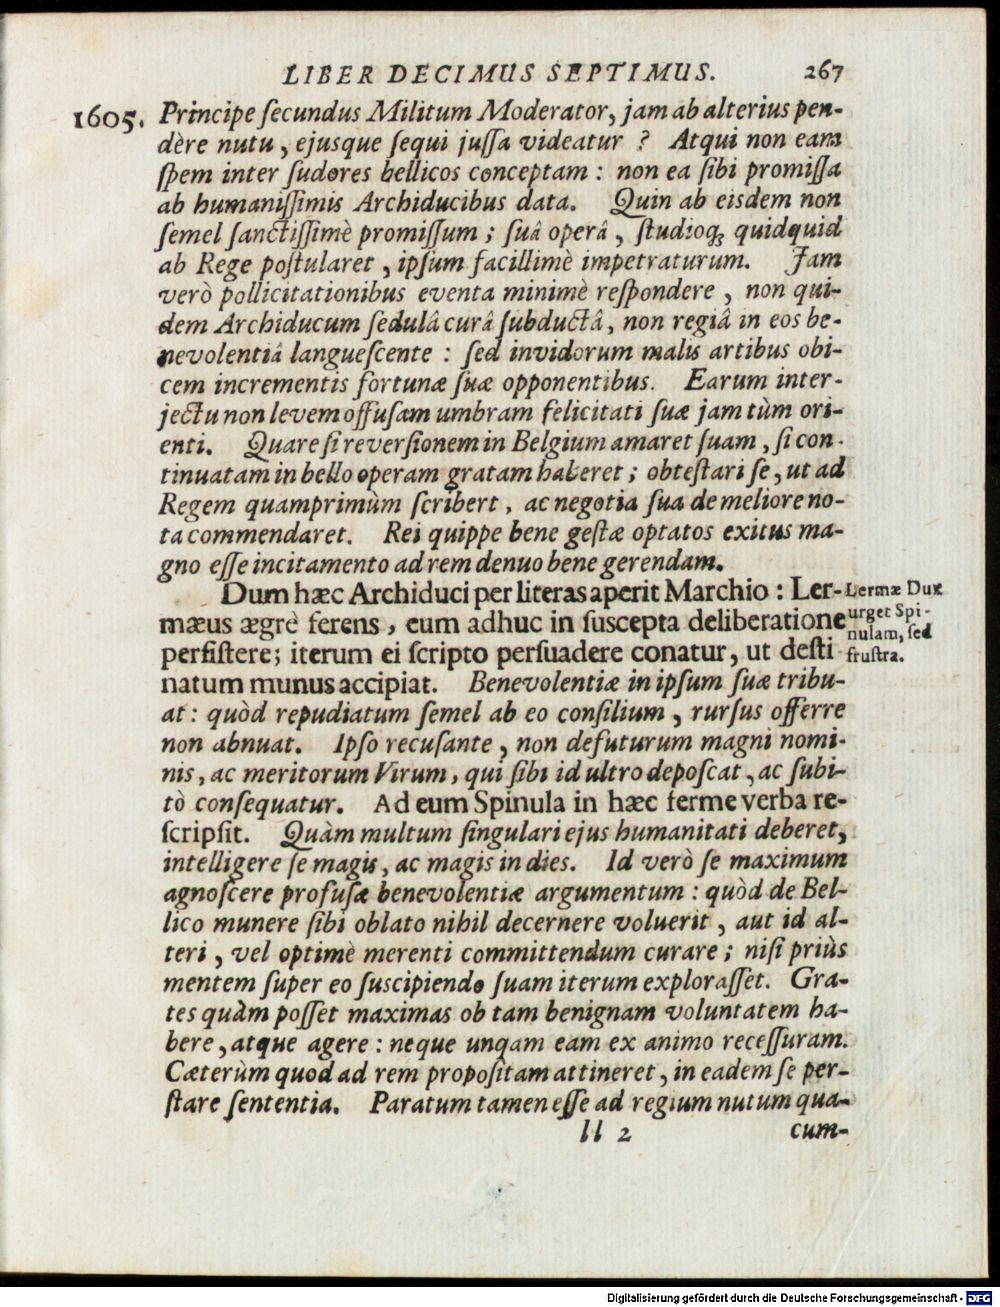 LIBER DECIMUS SEPTIMUS. 267
1605. Principe ſecundus Militum Moderator, jam ab alterius pen-
dère nutu, ejusque ſequi juſſa videatur? Atqui non eam
ſpem inter ſudores bellicos conceptam: non ea ſibi promiſſa
ab humaniſſimis Archiducibus data. Quin ab eisdem non
ſemel ſanctiſſimè promiſſum; ſuâ operâ, ſtudioq́₃ quidquid
ab Rege poſtularet, ipſum facillimè impetraturum. Jam
verò pollicitationibus eventa minimè reſpondere, non qui-
dem Archiducum ſedulâ curâ ſubductâ, non regiâ in eos be-
nevolentiâ langueſcente: ſed invidorum malis artibus obi-
cem incrementis fortunæ ſuæ opponentibus. Earum inter-
jectu non levem offuſam umbram felicitati ſuæ jam tùm ori-
enti. Quare ſi reverſionem in Belgium amaret ſuam, ſi con-
tinuatam in bello operam gratam haberet; obteſtari ſe, ut ad
Regem quamprimùm ſcribert, ac negotia ſua de meliore no-
ta commendaret. Rei quippe bene geſtæ optatos exitus ma-
gno eſſe incitamento ad rem denuo bene gerendam.
Dum hæc Archiduci per literas aperit Marchio: Ler-
mæus ægrè ferens, eum adhuc in ſuscepta deliberatione
perſiſtere; iterum ei ſcripto perſuadere conatur, ut deſti
natum munus accipiat. Benevolentiæ in ipſum ſuæ tribu-
at: quòd repudiatum ſemel ab eo conſilium, rurſus offerre
non abnuat. Ipſo recuſante, non defuturum magni nomi-
nis, ac meritorum Virum, qui ſibi id ultro depoſcat, ac ſubi-
tò conſequatur. Ad eum Spinula in hæc ferme verba re-
ſcripſit. Quàm multum ſingulari ejus humanitati deberet,
intelligere ſe magis, ac magis in dies. Id verò ſe maximum
agnoſcere profuſæ benevolentiæ argumentum: quòd de Bel-
lico munere ſibi oblato nihil decernere voluerit, aut id al-
teri, vel optimè merenti committendum curare; niſi priùs
mentem ſuper eo ſuscipiendo ſuam iterum exploraſſet. Gra-
tes quàm poſſet maximas ob tam benignam voluntatem ha-
bere, atque agere: neque unqam eam ex animo receſſuram.
Cæterùm quod ad rem propoſitam attineret, in eadem ſe per-
ſtare ſententia. Paratum tamen eſſe ad regium nutum qua-
ll 2 cum-
Lermæ Dux
urget Spi-
nulam, ſed
fruſtra.
Digitalisierung gefördert durch die Deutsche Forschungsgemeinschaft - DFG